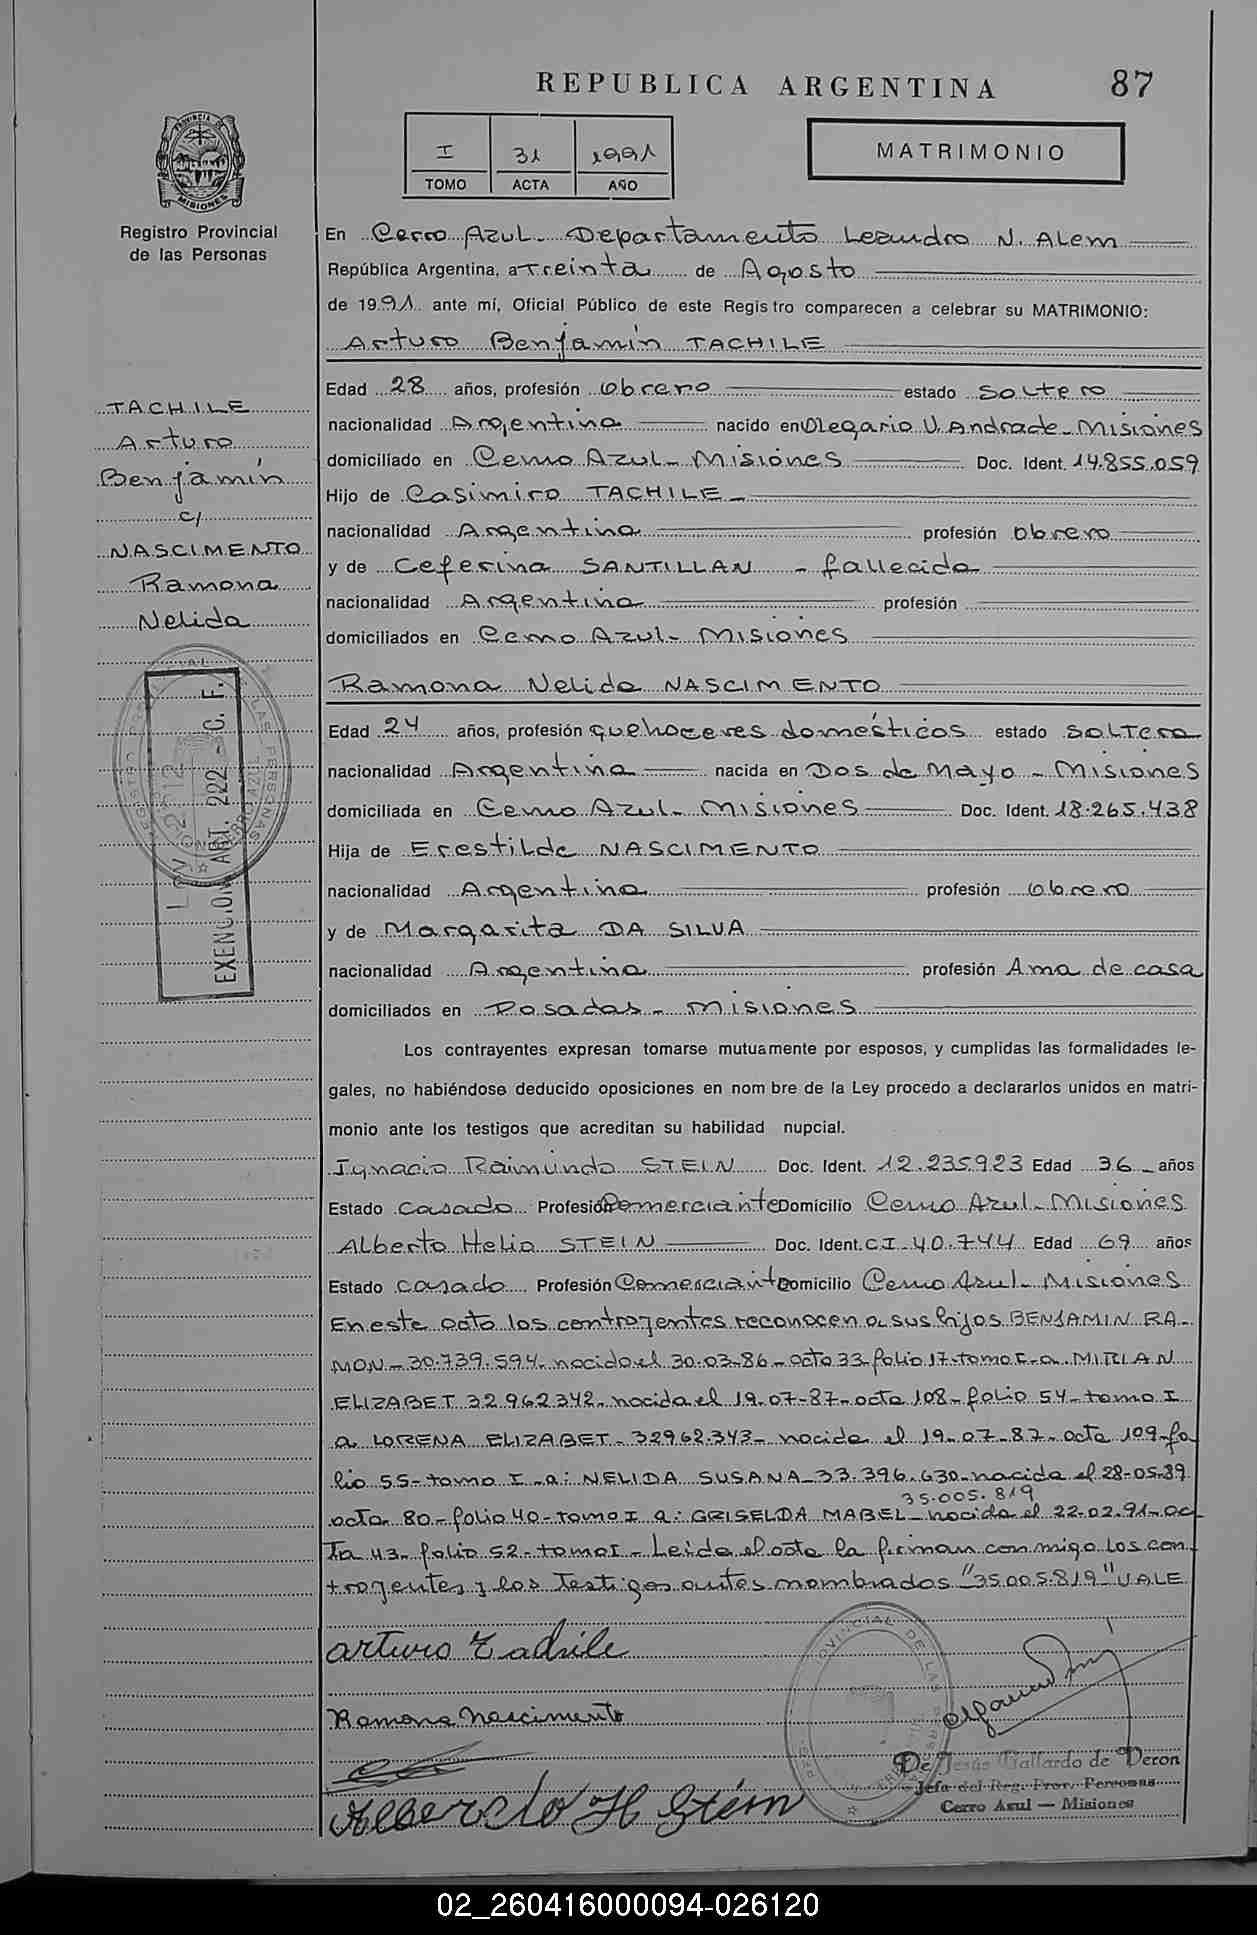 REPUBLICA ARGENTINA
87
I 31 1991
TOMO ACTA AÑO
MATRIMONIO
PROVINCIA DE
MISIONES
Registro Provincial
de las Personas
En Cerro Azul - Departamento Leandro N. Alem
República Argentina, a Treinta de Agosto
de 1991 ante mí, Oficial Público de este Regis tro comparecen a celebrar su MATRIMONIO:
Arturo Benjamín TACHILE
TACHILE
Arturo
Benjamín
c/
NASCIMENTO
Ramona
Nelida
Edad 28 años, profesión obrero estado soltero
nacionalidad Argentina nacido en Olegario V. Andrade - Misiones
domiciliado en Cerro Azul - Misiones Doc. Ident. 14.855.059
Hijo de Casimiro TACHILE -
nacionalidad Argentina profesión obrero
y de Ceferina SANTILLAN - fallecida
nacionalidad Argentina profesión
domiciliados en Cerro Azul - Misiones
Ramona Nelida NASCIMENTO
Edad 24 años, profesión quehaceres domésticos estado soltera
nacionalidad Argentina nacida en Dos de Mayo - Misiones
domiciliada en Cerro Azul - Misiones Doc. Ident. 18.265.438
Hija de Erestilde NASCIMENTO
nacionalidad Argentina profesión obrero
y de Margarita DA SILVA
nacionalidad Argentina profesión Ama de casa
domiciliados en Posadas - Misiones
EXENC.O ART. 222 - C. F.
Los contrayentes expresan tomarse mutuamente por esposos, y cumplidas las formalidades le-
gales, no habiéndose deducido oposiciones en nom bre de la Ley procedo a declararlos unidos en matri-
monio ante los testigos que acreditan su habilidad nupcial.
Ignacio Raimundo STEIN Doc. Ident. 12.235.923 Edad 36 - años
Estado casado Profesión Comerciante Domicilio Cerro Azul - Misiones
Alberto Helio STEIN Doc. Ident. C.I. 40.744 Edad 69 años
Estado casado Profesión Comerciante Domicilio Cerro Azul - Misiones
En este acto los contrayentes reconocen a sus hijos BENJAMIN RA-
MON - 30.739.594 - nacido el 30-03-86 - acta 33 - folio 17 - tomo I - a MIRIAN
ELIZABET 32.962.342 - nacida el 19-07-87 - acta 108 - folio 54 - tomo I
a LORENA ELIZABET - 32962.343 - nacida el 19-07-87 - acta 109 - fo
lio 55 - tomo I - a: NELIDA SUSANA - 33.396.630 - nacida el 28-05-89
35.005.819
acta 80 - folio 40 - tomo I a: GRISELDA MABEL - nacida el 22-02-91 - ac
Ta 43 - folio 52 - tomo I - Leida el acta la firman con migo los con
trayentes y los Testigos antes nombrados "35.005.819" VALE
arturo Tachile
Ramona Nascimento
Alberto H Stein
De Jesús Gallardo de Veron
Jefa del Reg. Prov. Personas
Cerro Azul — Misiones
02_260416000094-026120